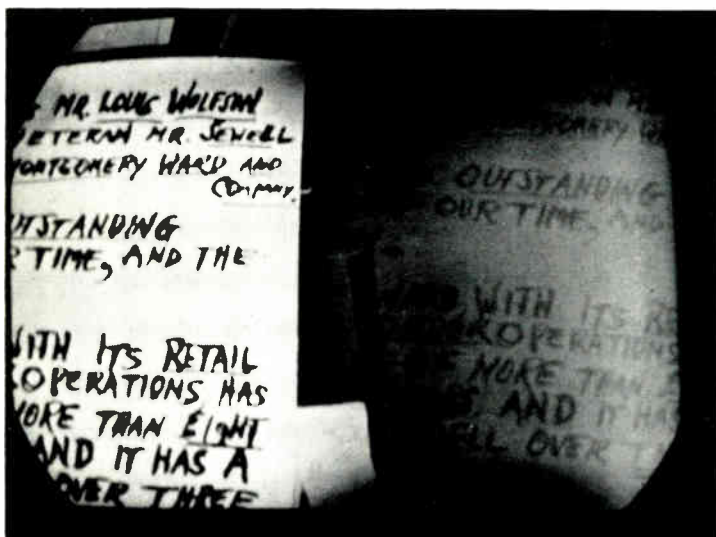 MR. LOUIS WOLFSON
VETERAN MR. SEWELL
MONTGOMERY WARD AND
COMPANY.
OUTSTANDING
TIME, AND THE
WITH ITS RETAIL
OPERATIONS HAS
MORE THAN EIGHT
AND IT HAS A
OVER THREE
OUTSTANDING
OUR TIME, AND
WITH ITS RE
OPERATIONS
MORE THAN
AND IT HAS
OVER